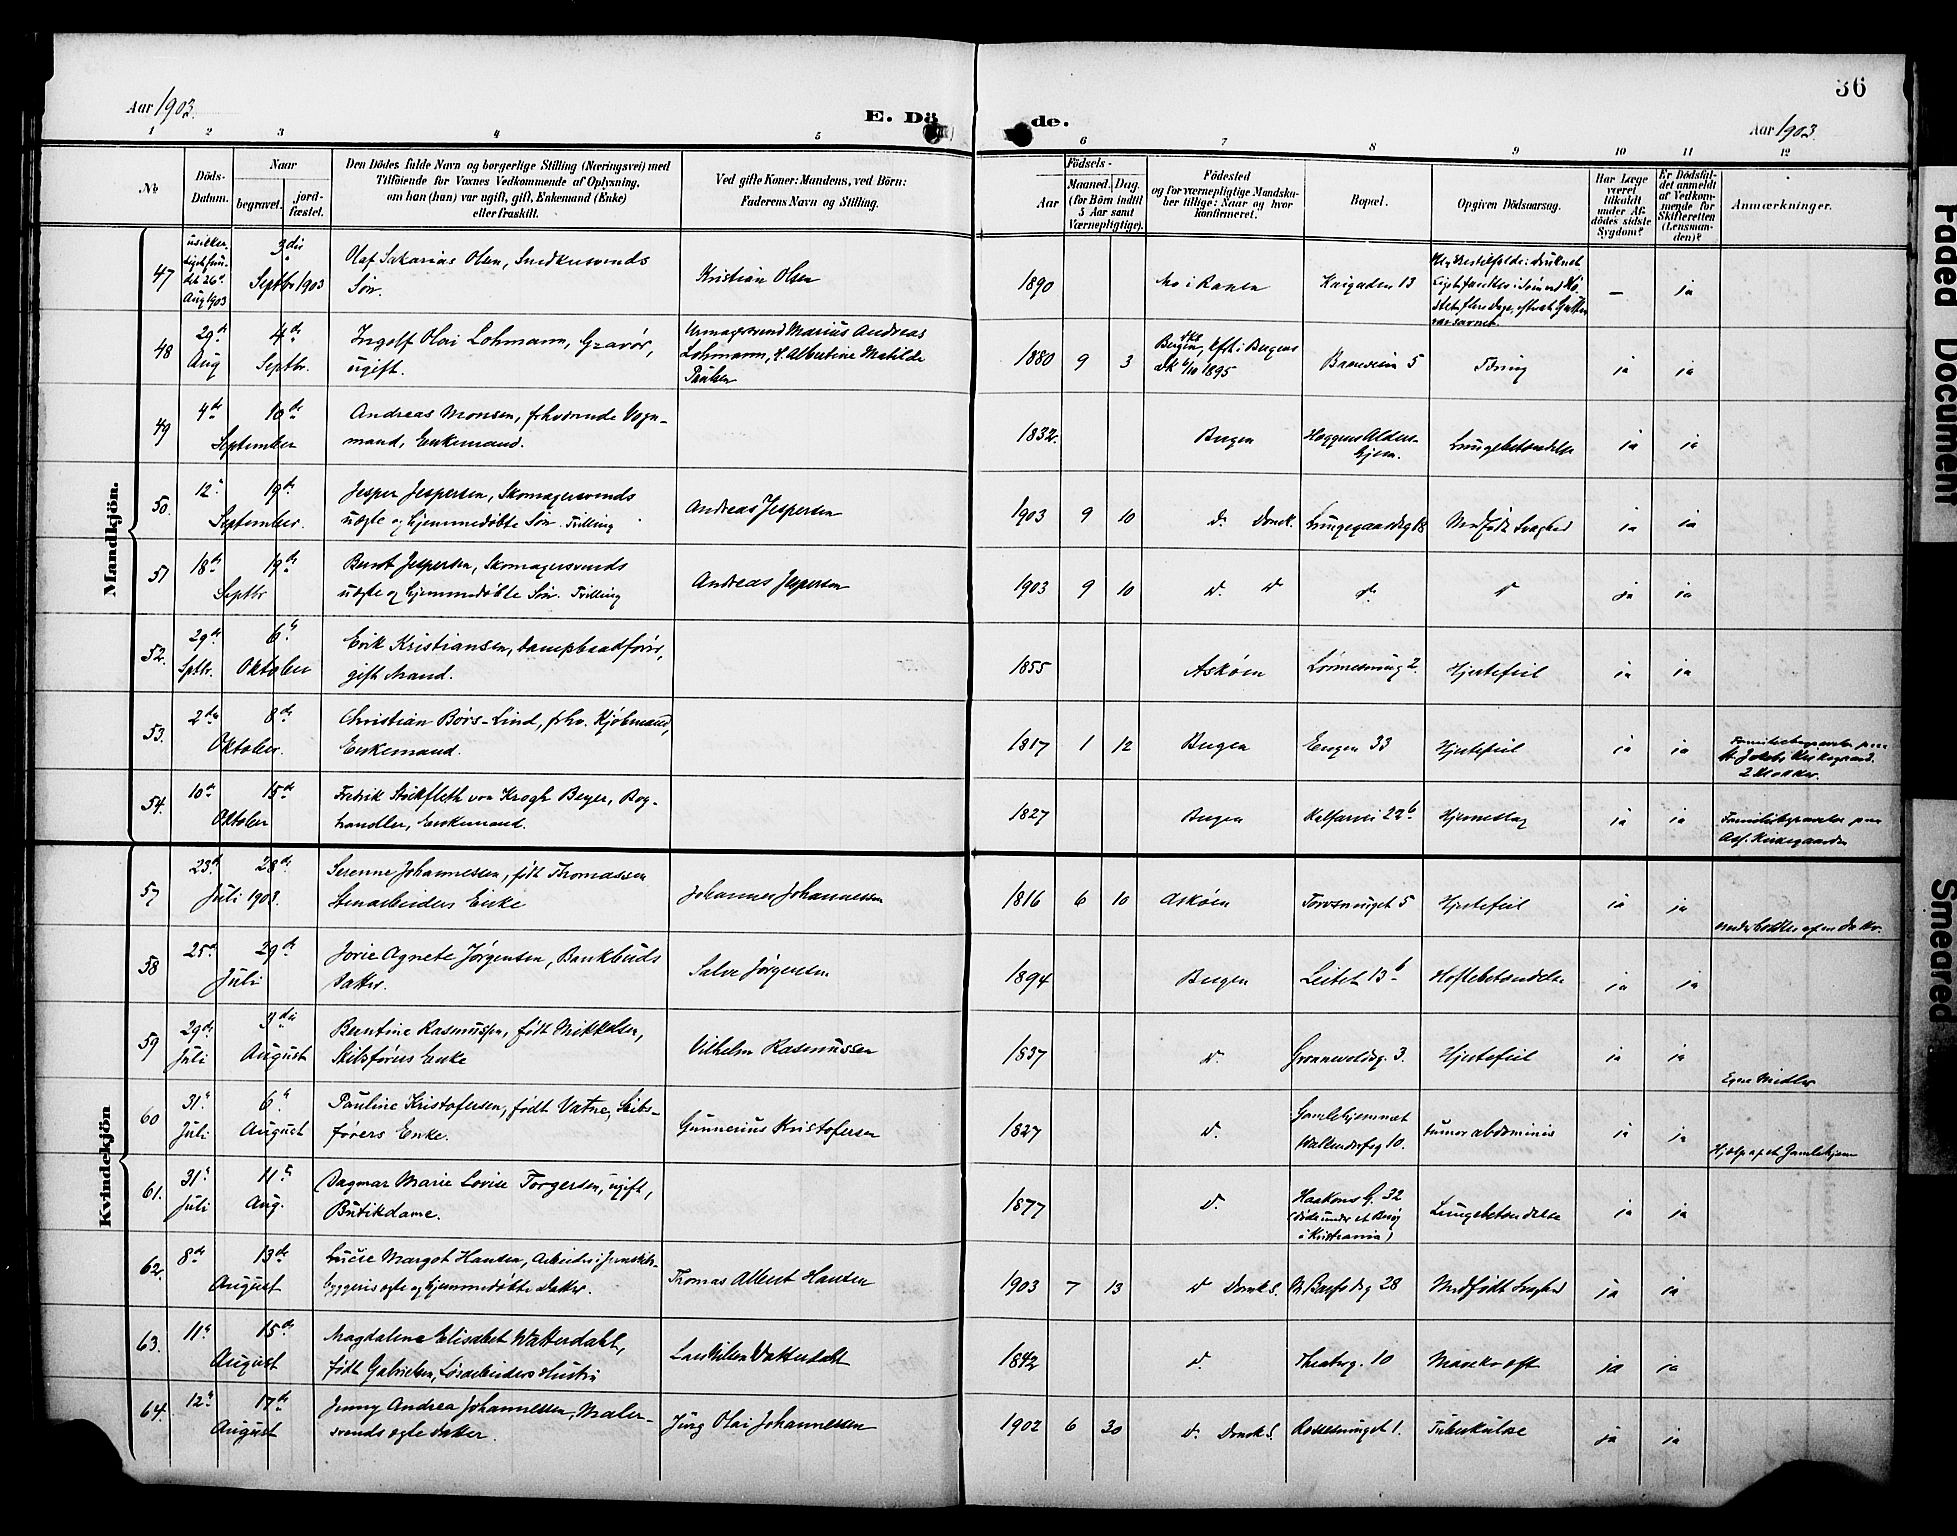 36
Aar 1903.
E. Dö
de.
Aar 1903
1 2 3 4 5 6 7 8 9 10 11 12
No
Döds-
Datum.
Naar
begravet.
jord-
fæstet.
Den Dödes fulde Navn og borgerlige Stilling (Næringsvei) med
Tilföiende for Voxnes Vedkommende af Oplysning,
om han (hun) var ugift, gift, Enkemand (Enke)
eller fraskilt.
Ved gifte Koner: Mandens, ved Börn:
Faderens Navn og Stilling.
Födsels-
Aar
Maaned.
Dag.
(for Börn indtil
5 Aar samt
Værnepligtige).
Födested
og for værnepligtige Mandsku-
ber tillige: Naar og hvor
konfirmeret.
Bopæl.
Opgiven Dödsaarsag.
Har Læge
været
tilkaldt
under Af-
dödes sidste
Sygdom?
Er Dödsfal-
det anmeldt
af Vedkom-
mende for
Skifteretten
(Lensman-
den)?
Anmærkninger.
Mandkjön.
47
usikker,
Liget fun-
det 26d
Aug 1903
3die
Septbr 1903
Olaf Sakarias Olsen, Snedkersvends
Søn.
Kristian Olsen
1890
Mo i Ranen
Kaigaden 13
—
ja
48
29de
Aug
4de
Septbr.
Ingolf Olai Lohmann, Gravør,
ugift.
Urmagersvend Marius Andreas
Lohmann, & Albertine Matilde
Paulsen
1880 9 3
Bergen, kft. i Bergens
Dk 6/10 1895
5
Tæring
ja
ja
49
4de
10de
September
Andreas Monsen, fhværende Vogn-
mand, Enkemand.
1832.
Bergen
Alders-
hjem.
Lungebetændelse
ja
ja
50.
12te
19de
September.
Jesper Jespersen, Skomagersvends
uægte og hjemmedøbte Søn. Tvilling
Andreas Jespersen
1903 9 10
do. Domk.
Lungegaardsg 18
Medfødt Svaghed
ja
ja
51
18de
19de
Septbr
Bernt Jespersen, Skomagersvends
uægte og hjemmedøbte Søn. Tvilling
Andreas Jespersen
1903 9 10
do. do
do.
do
ja
ja
52.
29de
Sptbr.
6te
Oktober
Erik Kristiansen, Dampbaadfører,
gift Mand.
1855
Askøen
2.
Hjertefeil
ja
ja
53.
2den
8de
Oktober.
Christian Børs-Lind, fhv. Kjøbmand,
Enkemand.
1817 1 12
Bergen
Engen 33
Hjertefeil
ja
ja
Familiebegravelse paa
St. Jakobs Kirkegaard.
2 Klokker.
54.
10de
15de
Oktober
Fredrik Stockfleth von Krogh Beyer, Bog-
handler, Enkemand.
1827
Bergen
Kalfarvei 22b
Hjerneslag
ja
ja
Familiebegravelse paa
Ass. Kirkegaarden
Kvindekjön
57
23de
28de
Juli 1903.
Serenne Johannessen, født Thomassen
Stenarbeiders Enke
Johannes Johannessen
1816 6 10
Askøen
5
Hjertefeil
ja
ja
58
25de
29de
Juli
Jovie Agnete Jørgensen, Bankbuds
Datter.
Salve Jørgensen
1894
Bergen
Leitet 13b
Hoftebetændelse
ja
ja
59
29de
Juli
3die
August
Berntine Rasmussen, født Mikkelsen,
Skibsførers Enke
Vilhelm Rasmussen
1837
do.
Grønnevoldsg. 3.
Hjertefeil
ja
ja
Egne Midler
60
31te
Juli
6te
August
Pauline Kristofersen, født Vatne, Skibs-
førers Enke.
Gunnerius Kristofersen
1827
do.
Gamlehjemmet
Wallendorfsg 10.
tumor abdominis
ja
ja
Hjælp af et Gamlehjem
61.
31te
Juli
11te
Aug.
Dagmar Marie Lovise Torgersen, ugift,
Butikdame.
1877
do.
Haakons G. 32
(døde under et Besøg
i Kristiania)
Lungebetændelse
ja
ja
62.
8de
13de
August
Lucie Margot Hansen, Arbeider i Jernskibs-
byggeris ægte og hjemmedøbte Datter.
Thomas Albert Hansen
1903 7 13
do Domk S.
28
Medfødt Svaghed
ja
ja
63.
11te
15de
August
Magdalene Elisabet Watterdahl,
født Gabrielsen, Løsarbeiders Hustru
Lars Nilsen Watterdahl
1842
do.
Theaterg. 10
Mavekræft
ja
ja
64.
12te
17de
August
Jenny Andrea Johannessen, Maler-
svends ægte Datter.
Jürg Olai Johannessen
1902 6 30
do. Domk S.
1.
Tuberkulose
ja
ja
Faded Document
Smeared